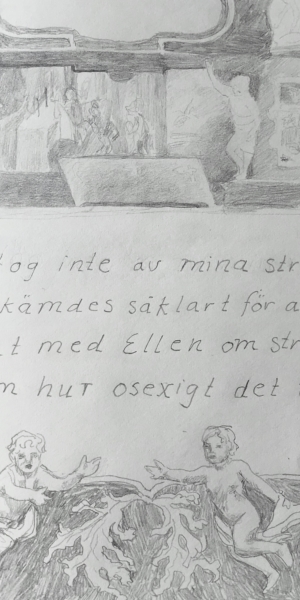 tog inte av mina str
kämdes säklart för a
t med Ellen om str
m hur osexigt det